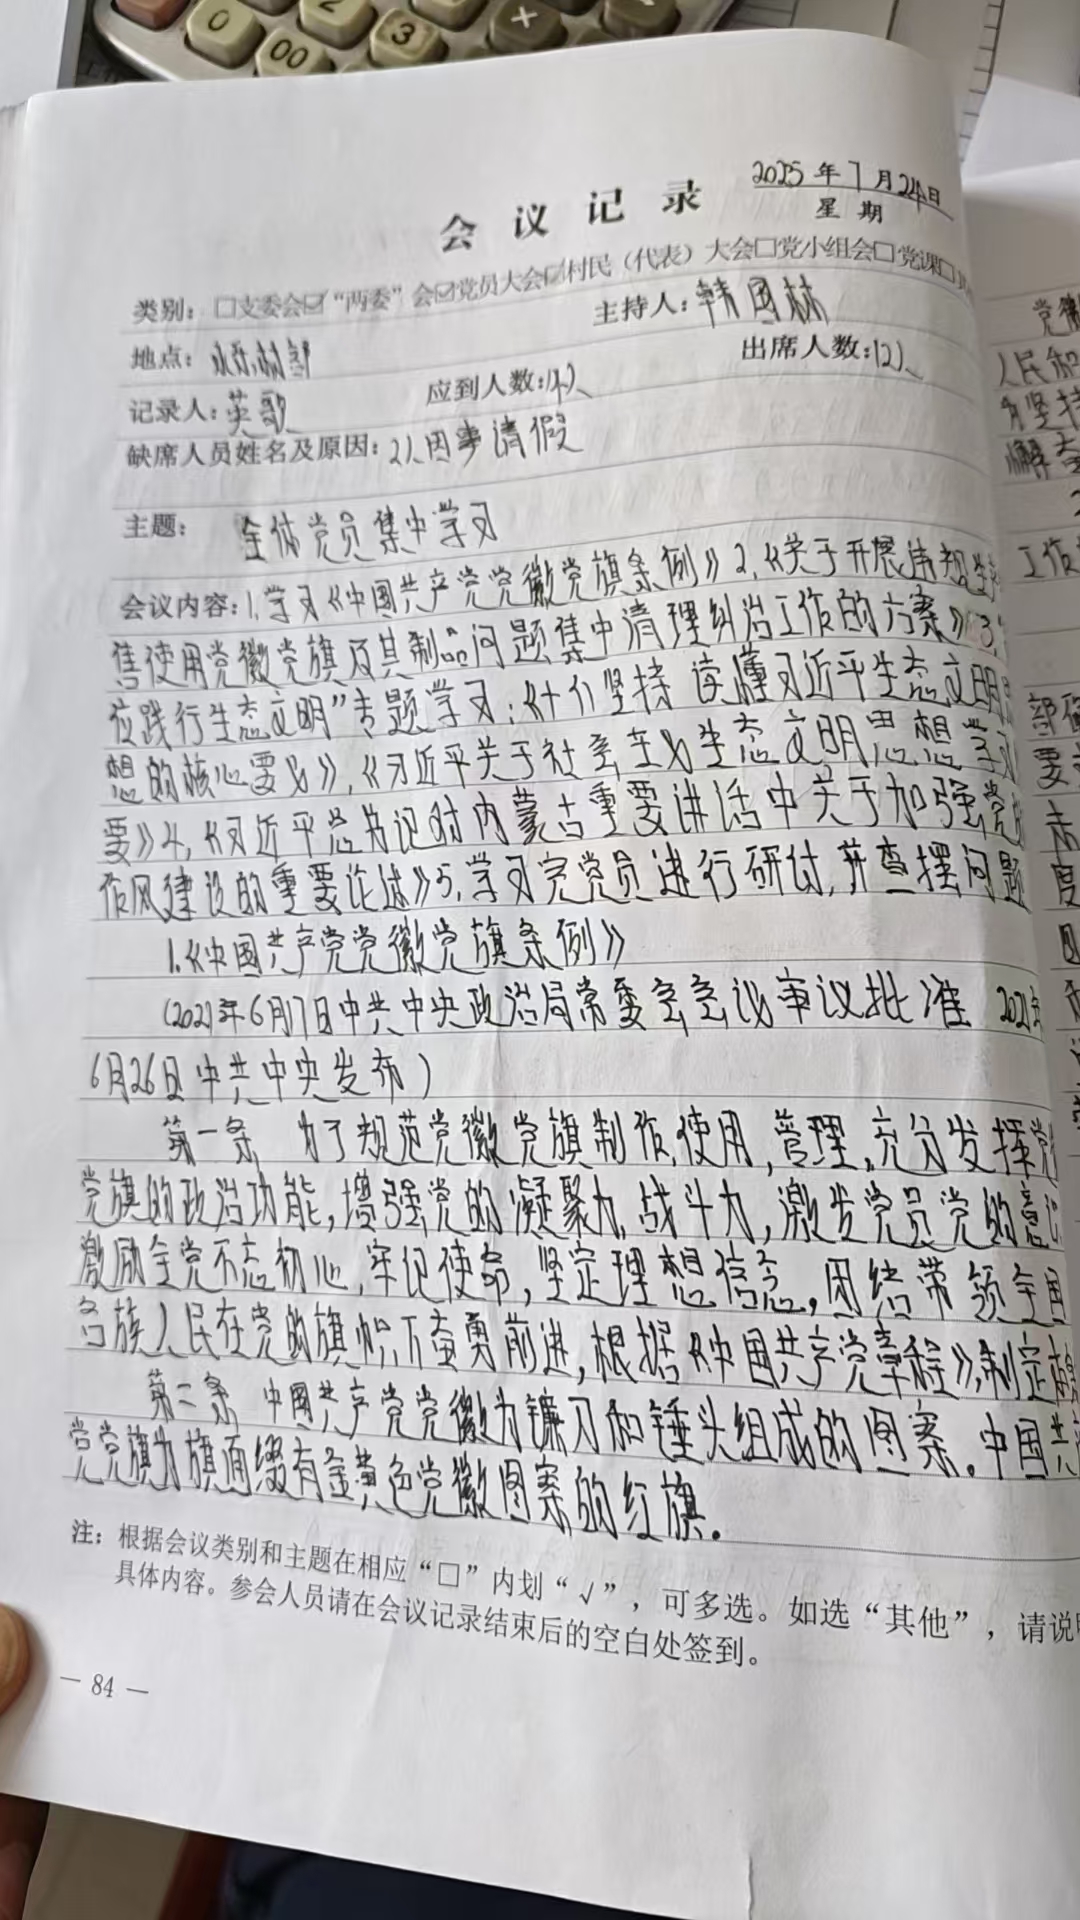 0 00 2 3 +
会议记录
2025年7月24日
星期
类别：□支委会☑“两委”会☑党员大会☑村民（代表）大会□党小组会□党课□
地点： 主持人：韩国林
记录人：英歌 应到人数：14人 出席人数：12人
缺席人员姓名及原因：2人因事请假
主题： 全体党员集中学习
会议内容：1.学习《中国共产党党徽党旗条例》2.《关于开展违规生产
售使用党徽党旗及其制品问题集中清理纠治工作的方案》3.
应践行生态文明”专题学习：《十个坚持 读懂习近平生态文明思
想的核心要义》,《习近平关于社会主义生态文明思想学习
要》4.《习近平总书记对内蒙古重要讲话中关于加强党的
作风建设的重要论述》5.学习完党员进行研讨,并查摆问题
1.《中国共产党党徽党旗条例》
(2021年6月17日中共中央政治局常委会会议审议批准 2021年
6月26日中共中央发布)
第一条 为了规范党徽党旗制作,使用,管理,充分发挥党
党旗的政治功能,增强党的凝聚力,战斗力,激发党员党的意识
激励全党不忘初心,牢记使命,坚定理想信念,团结带领全国
各族人民在党的旗帜下奋勇前进,根据《中国共产党章程》,制定
第二条 中国共产党党徽为镰刀和锤头组成的图案。中国共
党党旗为旗面缀有金黄色党徽图案的红旗.
注：根据会议类别和主题在相应“□”内划“√”，可多选。如选“其他”，请说明
具体内容。参会人员请在会议记录结束后的空白处签到。
— 84 —
人民和
工作
要
度